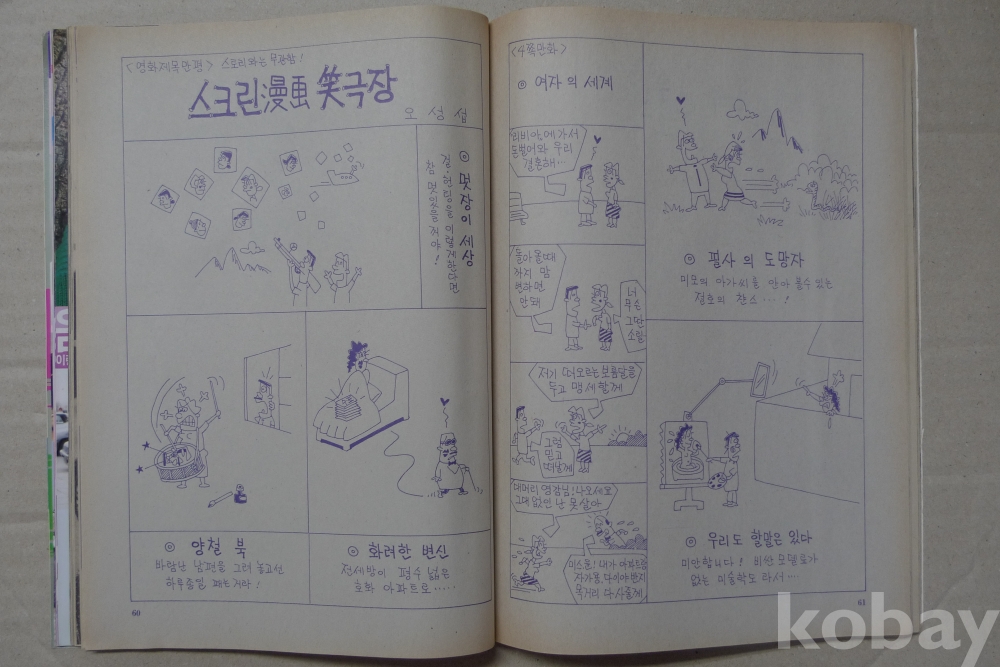 <영화제목만평> 스토리와는 무관함!
스크린漫画 笑극장
오성섭
◎ 멋장이 세상
걸·헌팅을 이렇게한다면
참 멋있을 거야!
◎ 양철 북
바람난 남편을 그려 놓고선
하루종일 패는거라!
◎ 화려한 변신
전세방이 평수 넓은
호화 아파트로.....
60
<4쪽만화>
◎ 여자의 세계
리비아에 가서
돈벌어와 우리
결혼해...
돌아올때
까지 맘
변하면
안돼
너
무슨
그딴
소릴
저기 떠오르는 보름달을
두고 맹세할께
그럼
믿고
떠날께
대머리 영감님! 나오세요
그대 없인 난 못살아
미스론! 내가 아파트랑
자가용 다이아반지
목거리 다 사줄께
◎ 필사의 도망자
미모의 아가씨를 안아 볼수 있는
절호의 찬스...!
◎ 우리도 할말은 있다
미안합니다! 비싼 모델료가
없는 미술학도 라서...
61
kobay